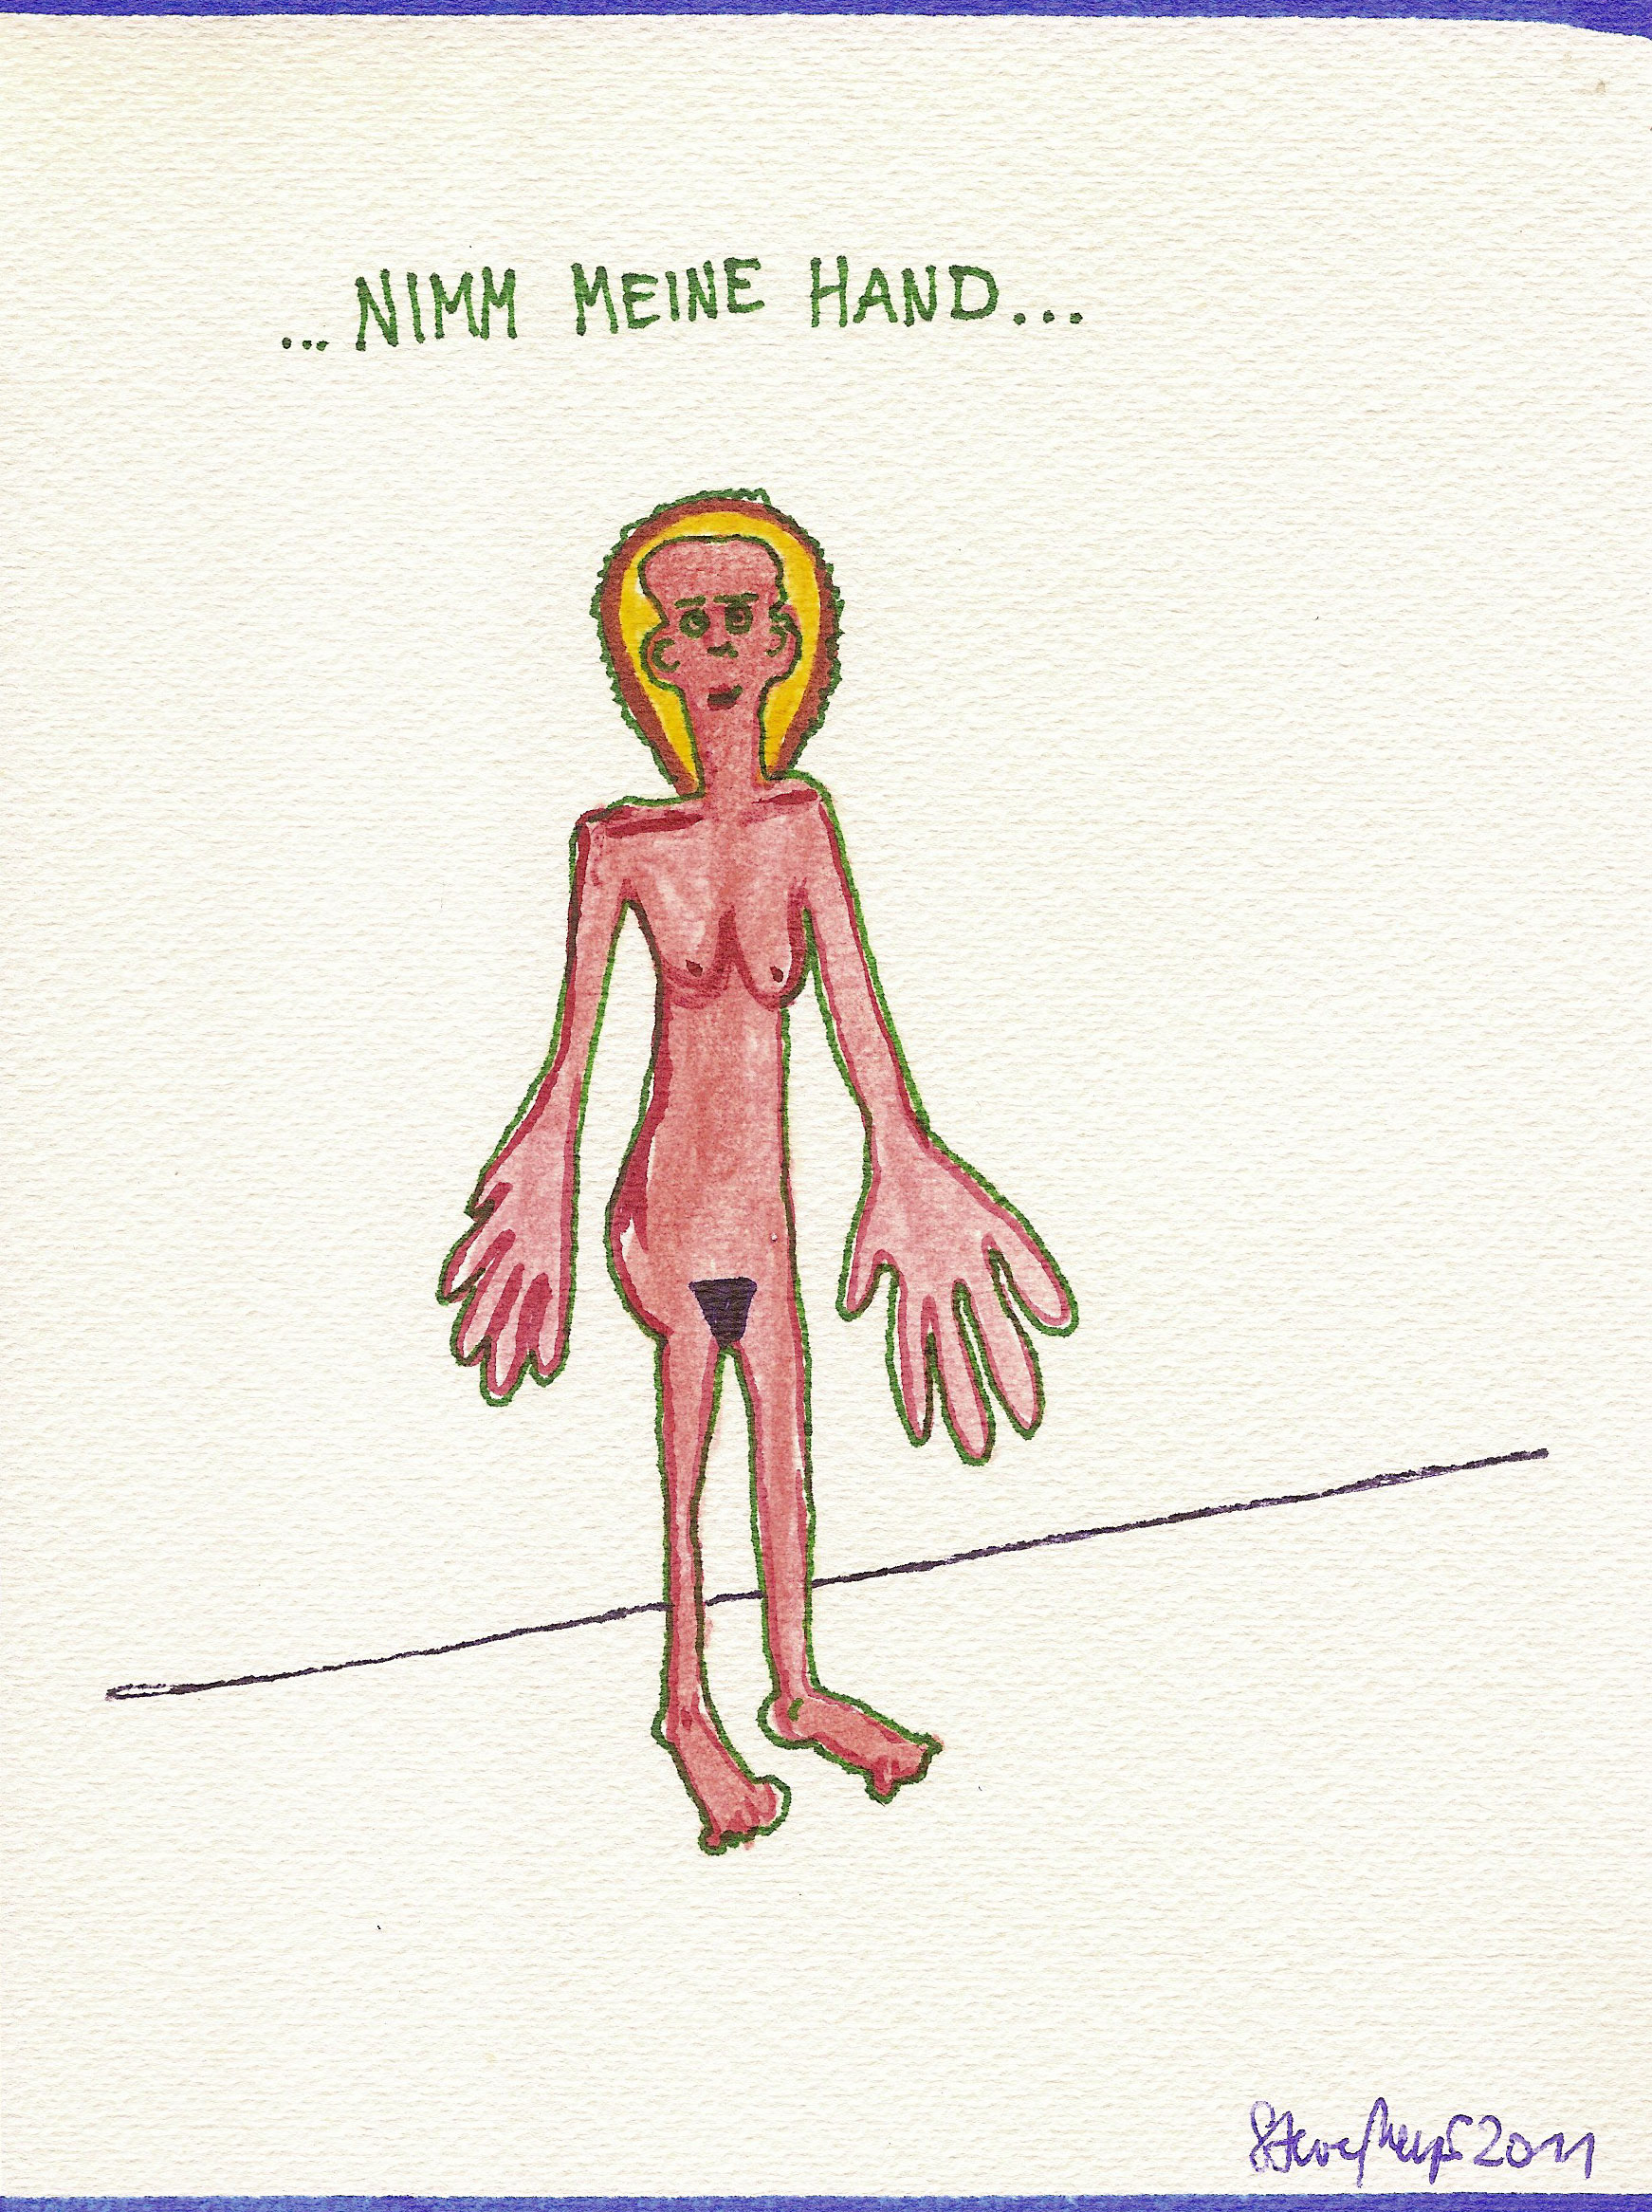 ...NIMM MEINE HAND...
2011